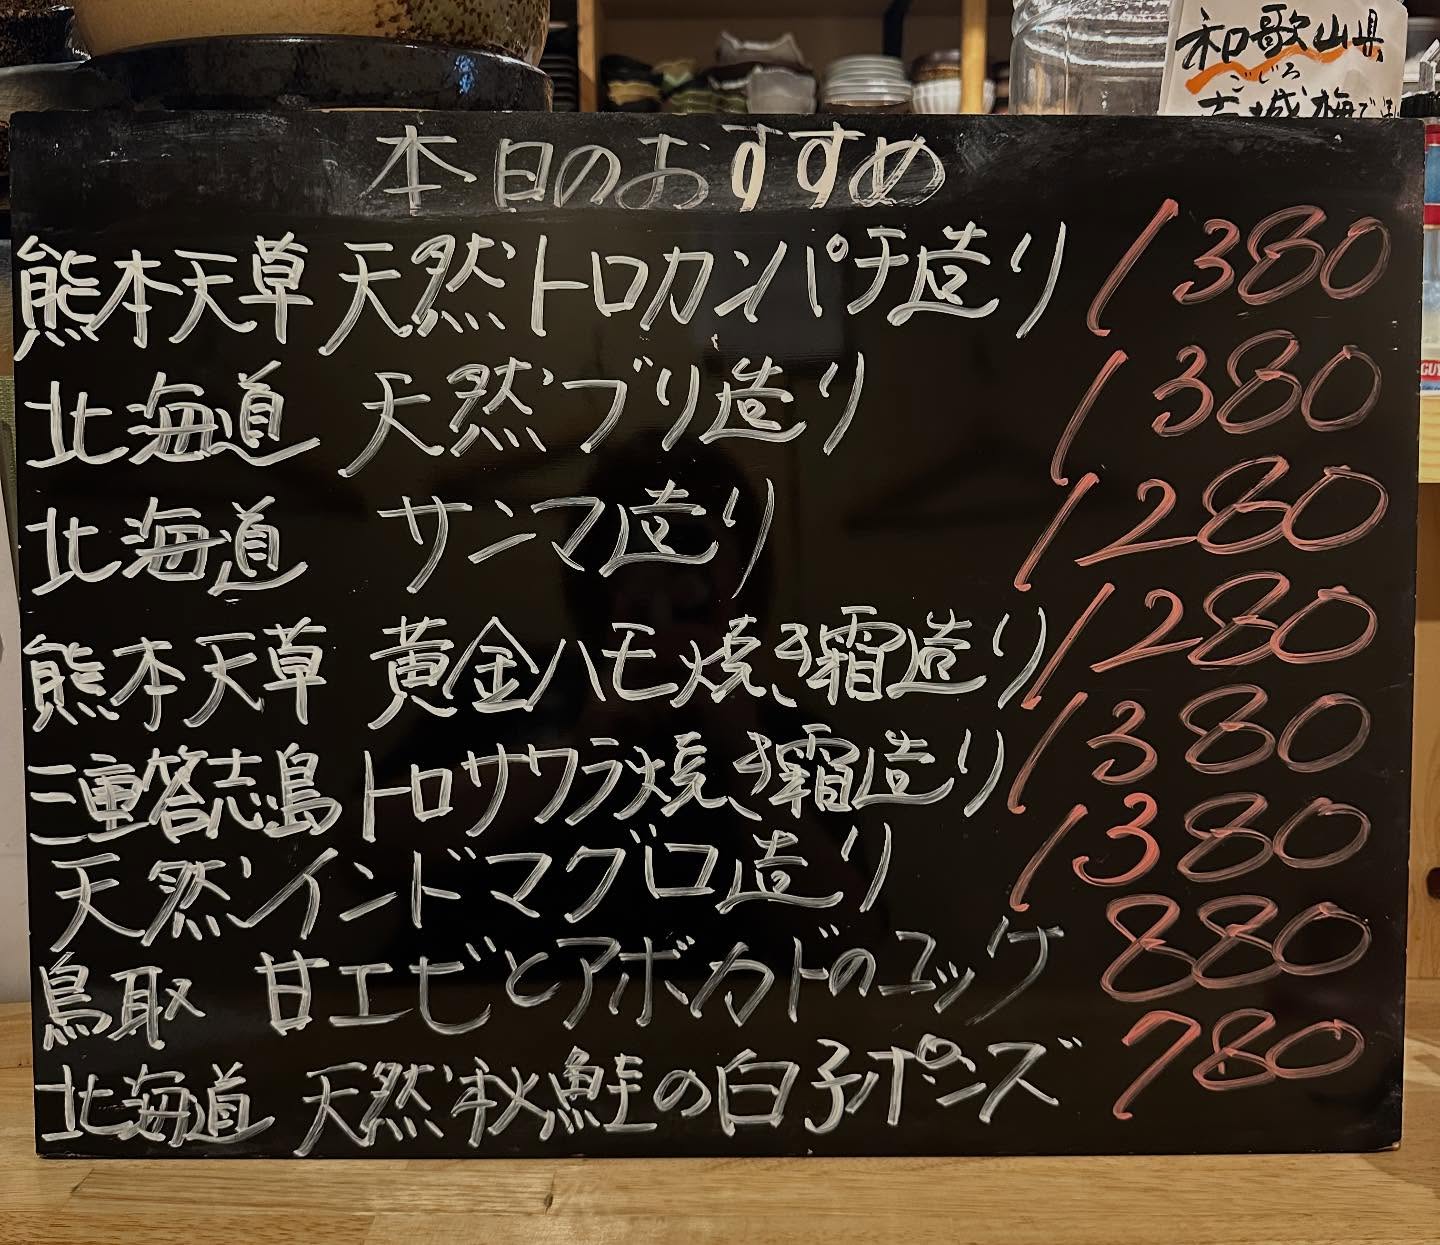 和歌山県
ごじろ
古城梅で
本日のおすすめ
熊本天草 天然トロカンパチ造り 1380
北海道 天然ブリ造り 1380
北海道 サンマ造り 1280
熊本天草 黄金ハモ焼き霜造り 1280
三重答志島トロサワラ焼き霜造り 1380
天然インドマグロ造り 1380
鳥取 甘エビとアボカドのユッケ 880
北海道 天然秋鮭の白子ポンズ 780